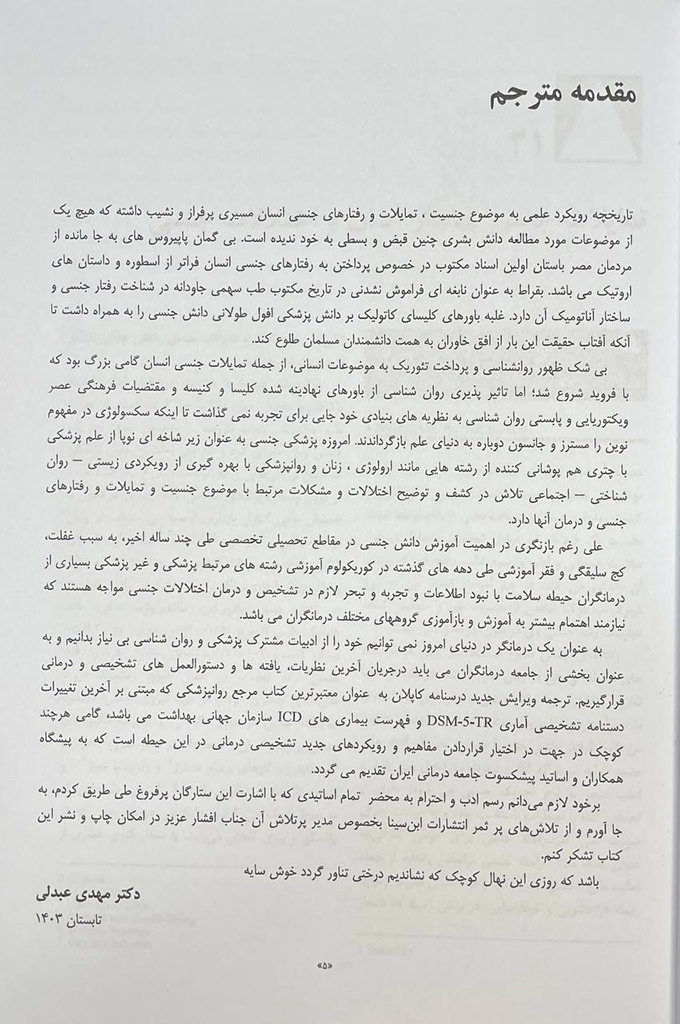 مقدمه مترجم
تاریخچه رویکرد علمی به موضوع جنسیت ، تمایلات و رفتارهای جنسی انسان مسیری پرفراز و نشیب داشته که هیچ یک
از موضوعات مورد مطالعه دانش بشری چنین قبض و بسطی به خود ندیده است. بی گمان پاپیروس های به جا مانده از
مردمان مصر باستان اولین اسناد مکتوب در خصوص پرداختن به رفتارهای جنسی انسان فراتر از اسطوره و داستان های
اروتیک می باشد. بقراط به عنوان نابغه ای فراموش نشدنی در تاریخ مکتوب طب سهمی جاودانه در شناخت رفتار جنسی و
ساختار آناتومیک آن دارد. غلبه باورهای کلیسای کاتولیک بر دانش پزشکی افول طولانی دانش جنسی را به همراه داشت تا
آنکه آفتاب حقیقت این بار از افق خاوران به همت دانشمندان مسلمان طلوع کند.
بی شک ظهور روانشناسی و پرداخت تئوریک به موضوعات انسانی، از جمله تمایلات جنسی انسان گامی بزرگ بود که
با فروید شروع شد؛ اما تاثیر پذیری روان شناسی از باورهای نهادینه شده کلیسا و کنیسه و مقتضیات فرهنگی عصر
ویکتوریایی و پابستی روان شناسی به نظریه های بنیادی خود جایی برای تجربه نمی گذاشت تا اینکه سکسولوژی در مفهوم
نوین را مسترز و جانسون دوباره به دنیای علم بازگرداندند. امروزه پزشکی جنسی به عنوان زیر شاخه ای نوپا از علم پزشکی
با چتری هم پوشانی کننده از رشته هایی مانند ارولوژی ، زنان و روانپزشکی با بهره گیری از رویکردی زیستی – روان
شناختی – اجتماعی تلاش در کشف و توضیح اختلالات و مشکلات مرتبط با موضوع جنسیت و تمایلات و رفتارهای
جنسی و درمان آنها دارد.
علی رغم بازنگری در اهمیت آموزش دانش جنسی در مقاطع تحصیلی تخصصی طی چند ساله اخیر، به سبب غفلت،
کج سلیقگی و فقر آموزشی طی دهه های گذشته در کوریکولوم آموزشی رشته های مرتبط پزشکی و غیر پزشکی بسیاری از
درمانگران حیطه سلامت با نبود اطلاعات و تجربه و تبحر لازم در تشخیص و درمان اختلالات جنسی مواجه هستند که
نیازمند اهتمام بیشتر به آموزش و بازآموزی گروههای مختلف درمانگران می باشد.
به عنوان یک درمانگر در دنیای امروز نمی توانیم خود را از ادبیات مشترک پزشکی و روان شناسی بی نیاز بدانیم و به
عنوان بخشی از جامعه درمانگران می باید درجریان آخرین نظریات، یافته ها و دستورالعمل های تشخیصی و درمانی
قرارگیریم. ترجمه ویرایش جدید درسنامه کاپلان به عنوان معتبرترین کتاب مرجع روانپزشکی که مبتنی بر آخرین تغییرات
دستنامه تشخیصی آماری DSM-5-TR و فهرست بیماری های ICD سازمان جهانی بهداشت می باشد، گامی هرچند
کوچک در جهت در اختیار قراردادن مفاهیم و رویکردهای جدید تشخیصی درمانی در این حیطه است که به پیشگاه
همکاران و اساتید پیشکسوت جامعه درمانی ایران تقدیم می گردد.
برخود لازم می‌دانم رسم ادب و احترام به محضر تمام اساتیدی که با اشارت این ستارگان پرفروغ طی طریق کردم، به
جا آورم و از تلاش‌های پر ثمر انتشارات ابن‌سینا بخصوص مدیر پرتلاش آن جناب افشار عزیز در امکان چاپ و نشر این
کتاب تشکر کنم.
باشد که روزی این نهال کوچک که نشاندیم درختی تناور گردد خوش سایه
دکتر مهدی عبدلی
تابستان ۱۴۰۳
«۵»